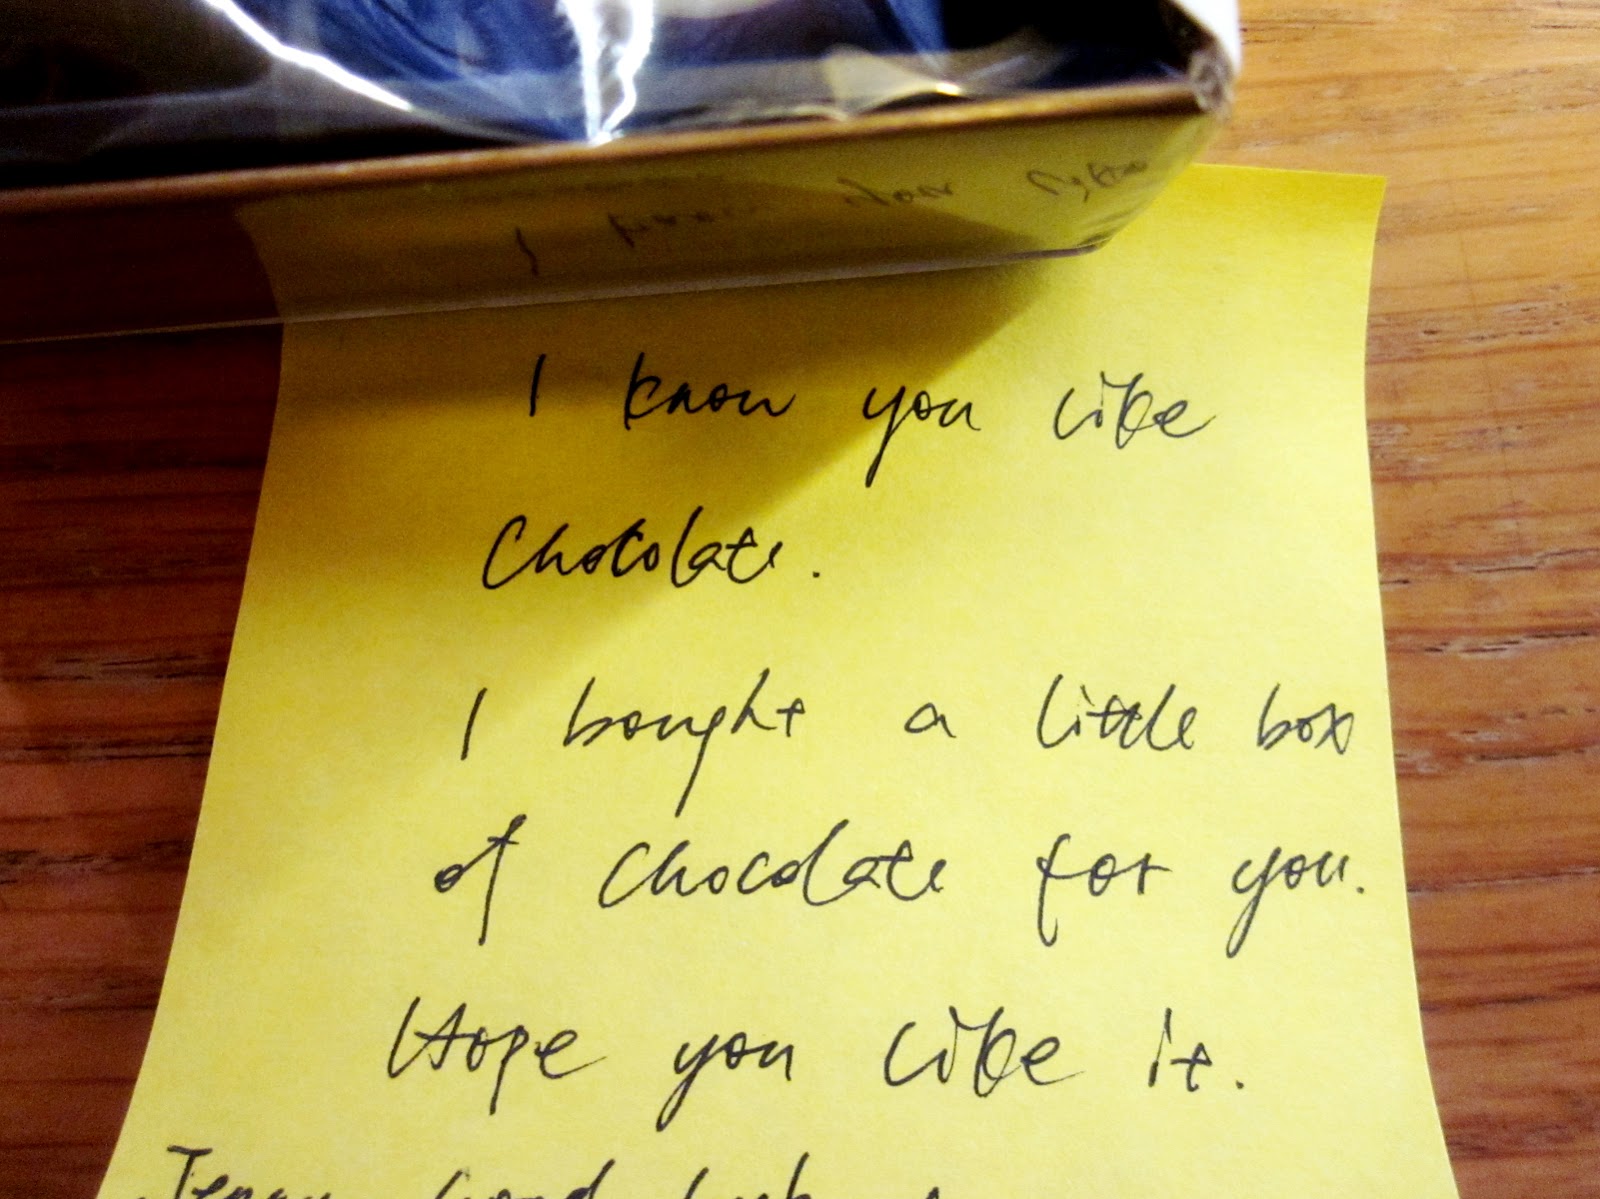 I know you like
Chocolate.
I bought a little box
of Chocolate for you.
Hope you like it.